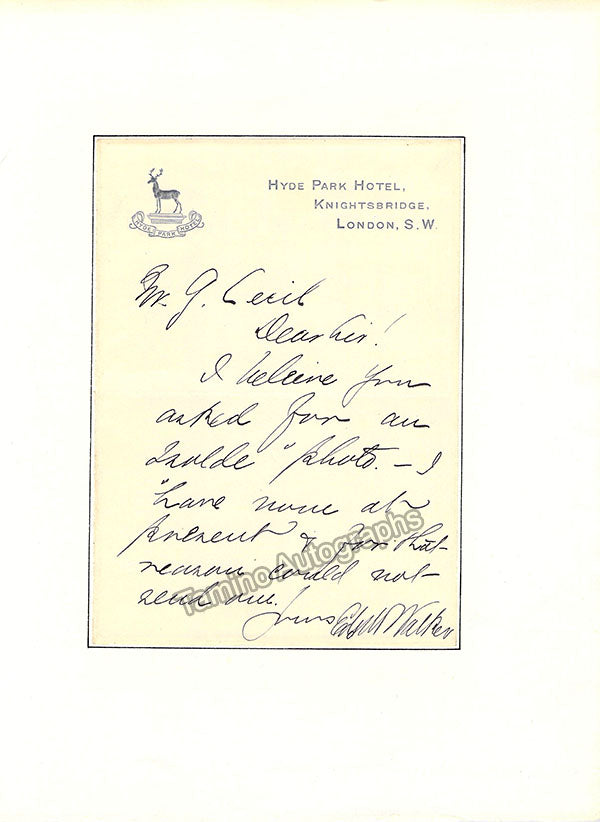 HYDE PARK HOTEL
HYDE PARK HOTEL,
KNIGHTSBRIDGE,
LONDON, S.W.
Mr. G. Cecil
Dear Sir!
I believe you
asked for an
Isolde "photo. – I
have none at
present & for that
reason could not
send one.
Yours Edyth Walker
Tamino Autographs